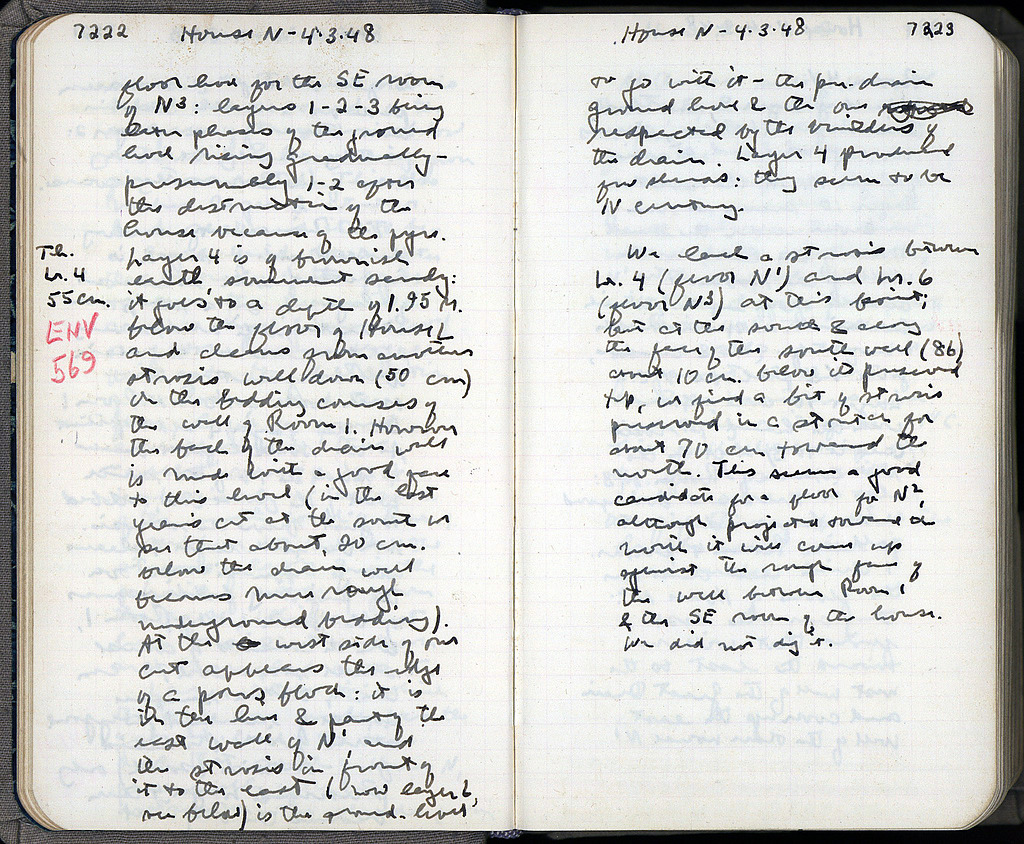 7222 House N - 4.3.48
floor level for the SE room
of N³: layers 1-2-3 being
later phases of the ground
level rising gradually -
presumably 1-2 after
the destruction of the
house because of the pyre.
Th.
Lr. 4
55 cm.
ENV
569
Layer 4 is of brownish
earth somewhat sandy:
it goes to a depth of 1.95 m.
below the floor of House L
and cleans from another
strosis well down (50 cm)
in the bedding courses of
the wall of Room 1. However
the back of the drain wall
is made with a good face
to this level (in the last
year's cut at the south we
see that about, 20 cm.
below the drain wall
becomes more rough
underground bedding).
At the west side of our
cut appears the edge
of a poros block: it is
in the line & part of the
east wall of N¹ and
the strosis in front of
it to the east (now layer 6,
see below) is the ground-level
House N - 4.3.48 7223
to go with it - the pre-drain
ground level & the one
respected by the builders of
the drain. Layer 4 produced
few sherds: they seem to be
IV century.
We lack a strosis between
Lr. 4 (floor N¹) and Lr. 6
(floor N³) at this point;
but at the south & along
the face of the south wall (86)
about 10 cm. below its preserved
top, we find a bit of strosis
preserved in a stretch for
about 70 cm toward the
north. This seems a good
candidate for a floor for N²,
although projected toward the
north it will come up
against the rough face of
the wall between Room 1
& the SE room of the house.
We did not dig it.